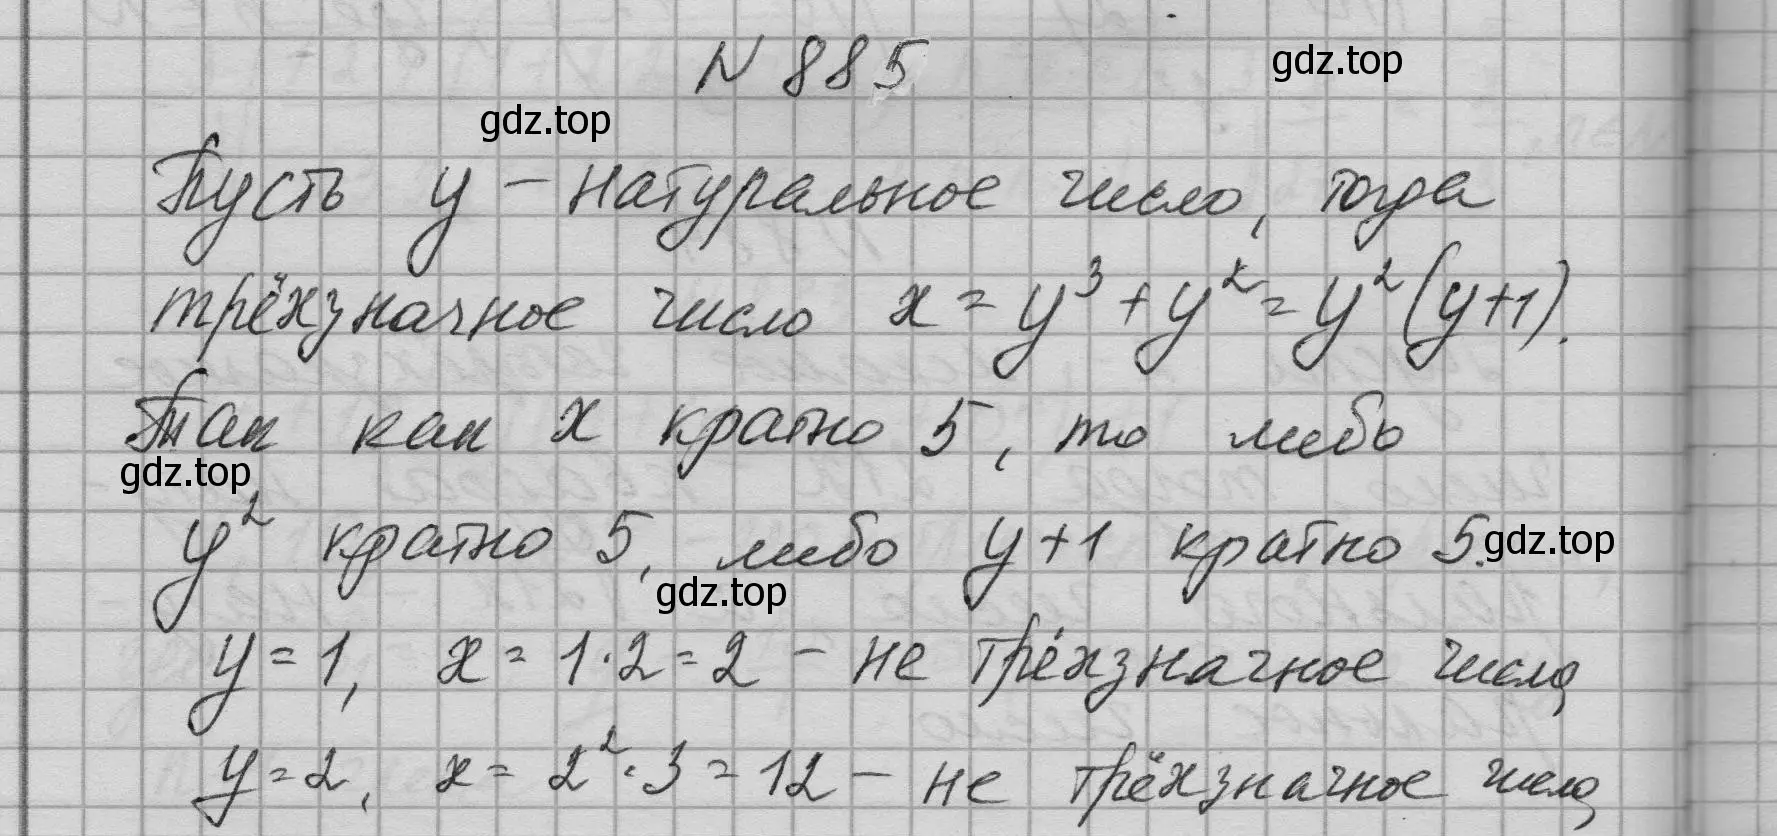 N 885
gdz.top
gdz.top
Пусть y - натуральное число, тогда
трёхзначное число x = y³ + y² = y² (y+1).
Так как x кратно 5, то либо
gdz.top
y² кратно 5, либо y+1 кратно 5.
gdz.top
gdz.top
y = 1, x = 1·2 = 2 - не трёхзначное число,
y = 2, x = 2²·3 = 12 - не трёхзначное число,